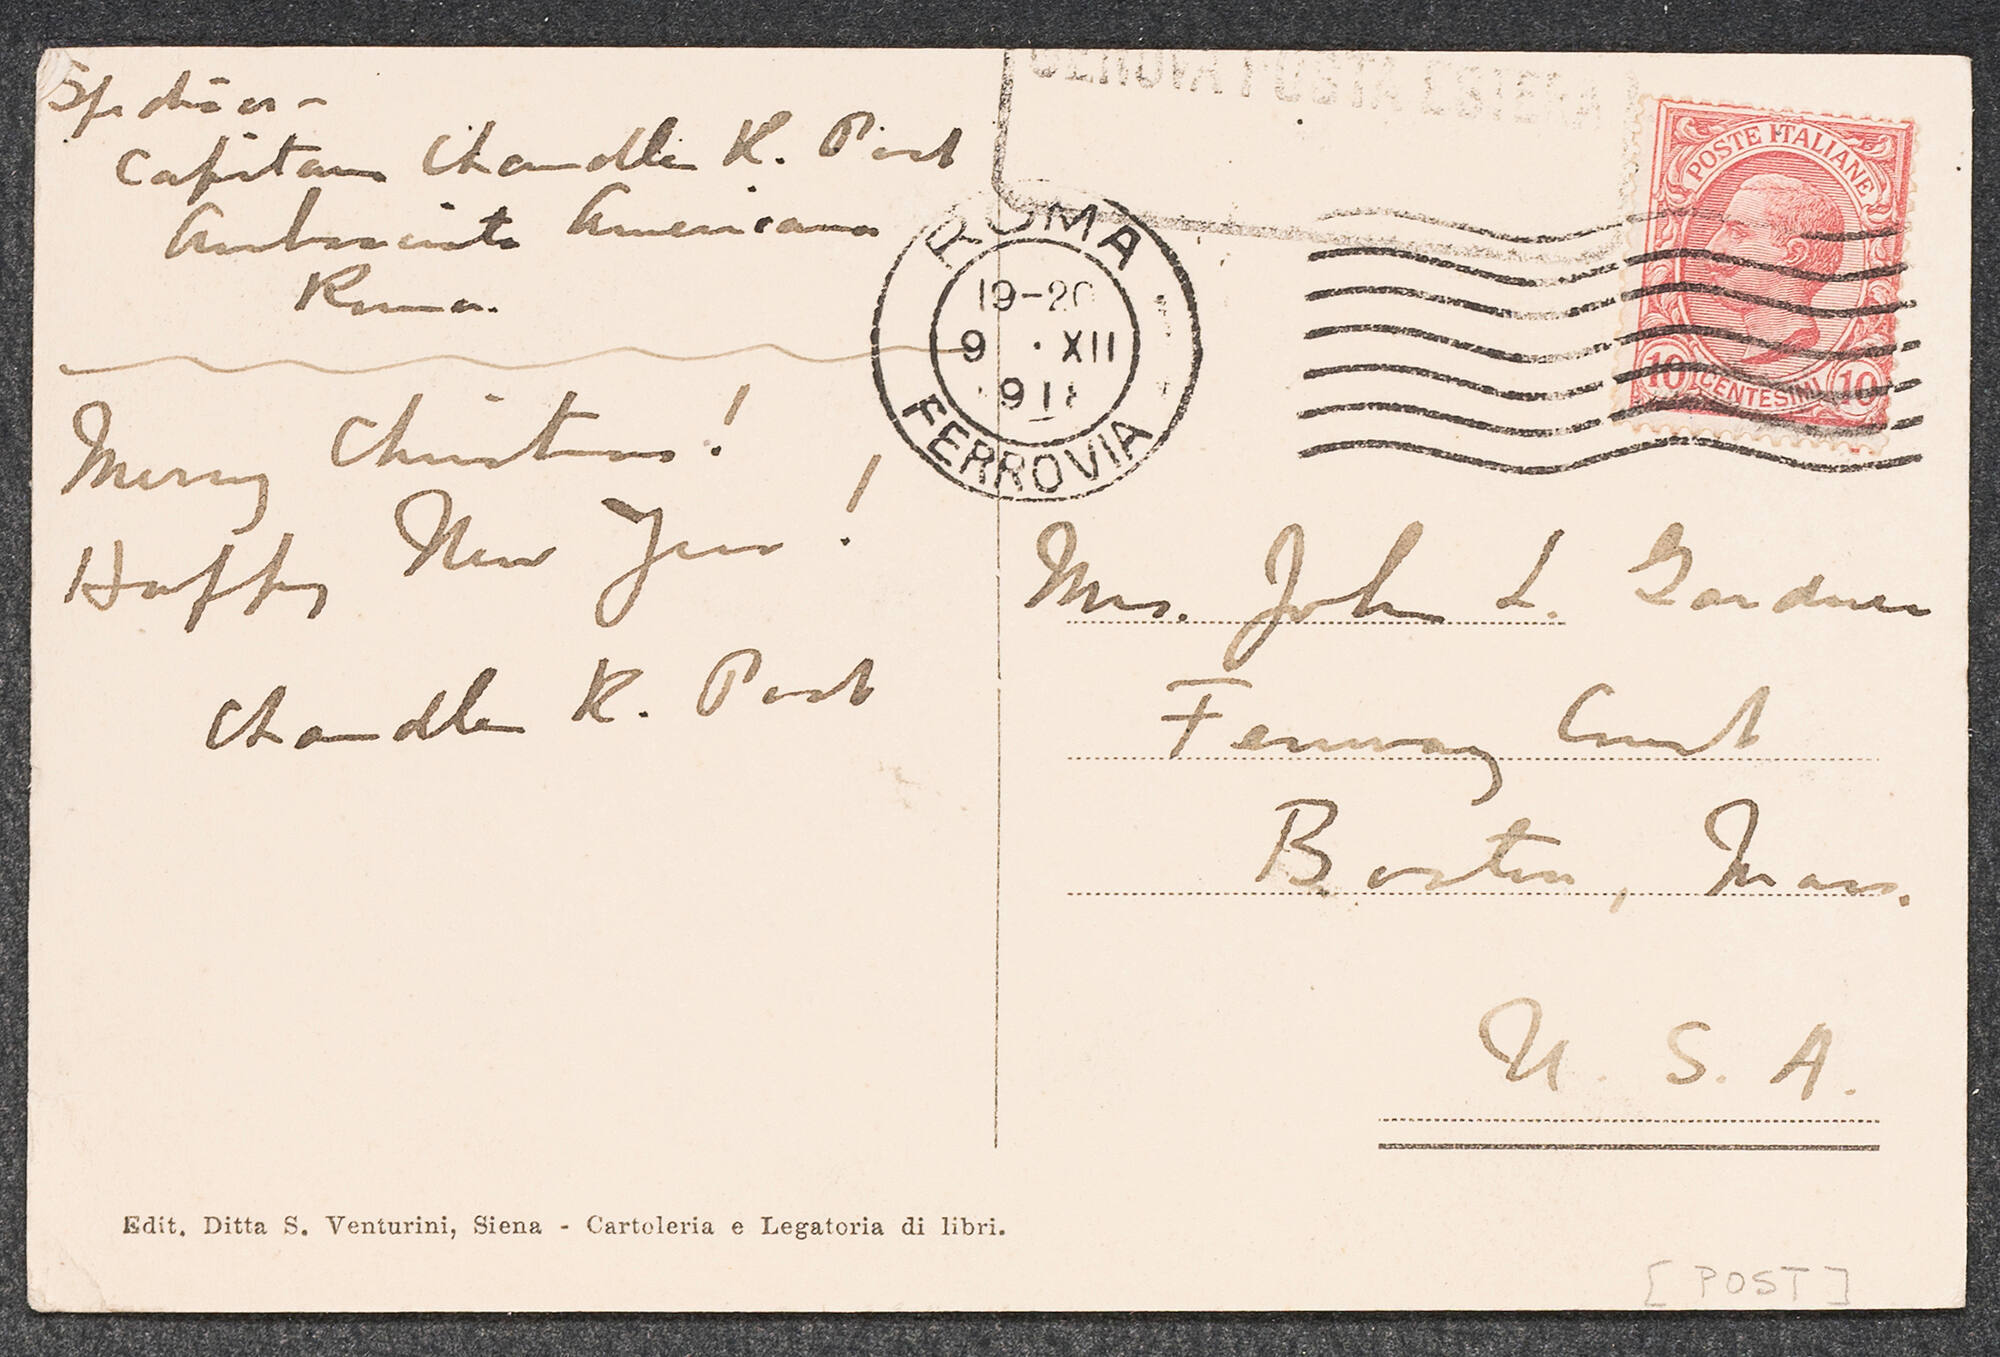 Speditore-
Capitano Chandler R. Post
Ambasciata Americana
Roma.
Merry Christmas!
Happy New Year!
Chandler R. Post
GENOVA POSTA ESTERA
ROMA
19-20
9 · XII
918
FERROVIA
POSTE ITALIANE
10 CENTESIMI 10
Mrs. John L. Gardner
Fenway Court
Boston, Mass.
U. S. A.
Edit. Ditta S. Venturini, Siena - Cartoleria e Legatoria di libri.
[POST]